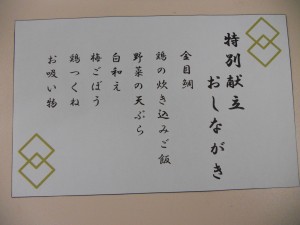 特別献立
おしながき
金目鯛
鶏の炊き込みご飯
野菜の天ぷら
白和え
梅ごぼう
鶏つくね
お吸い物